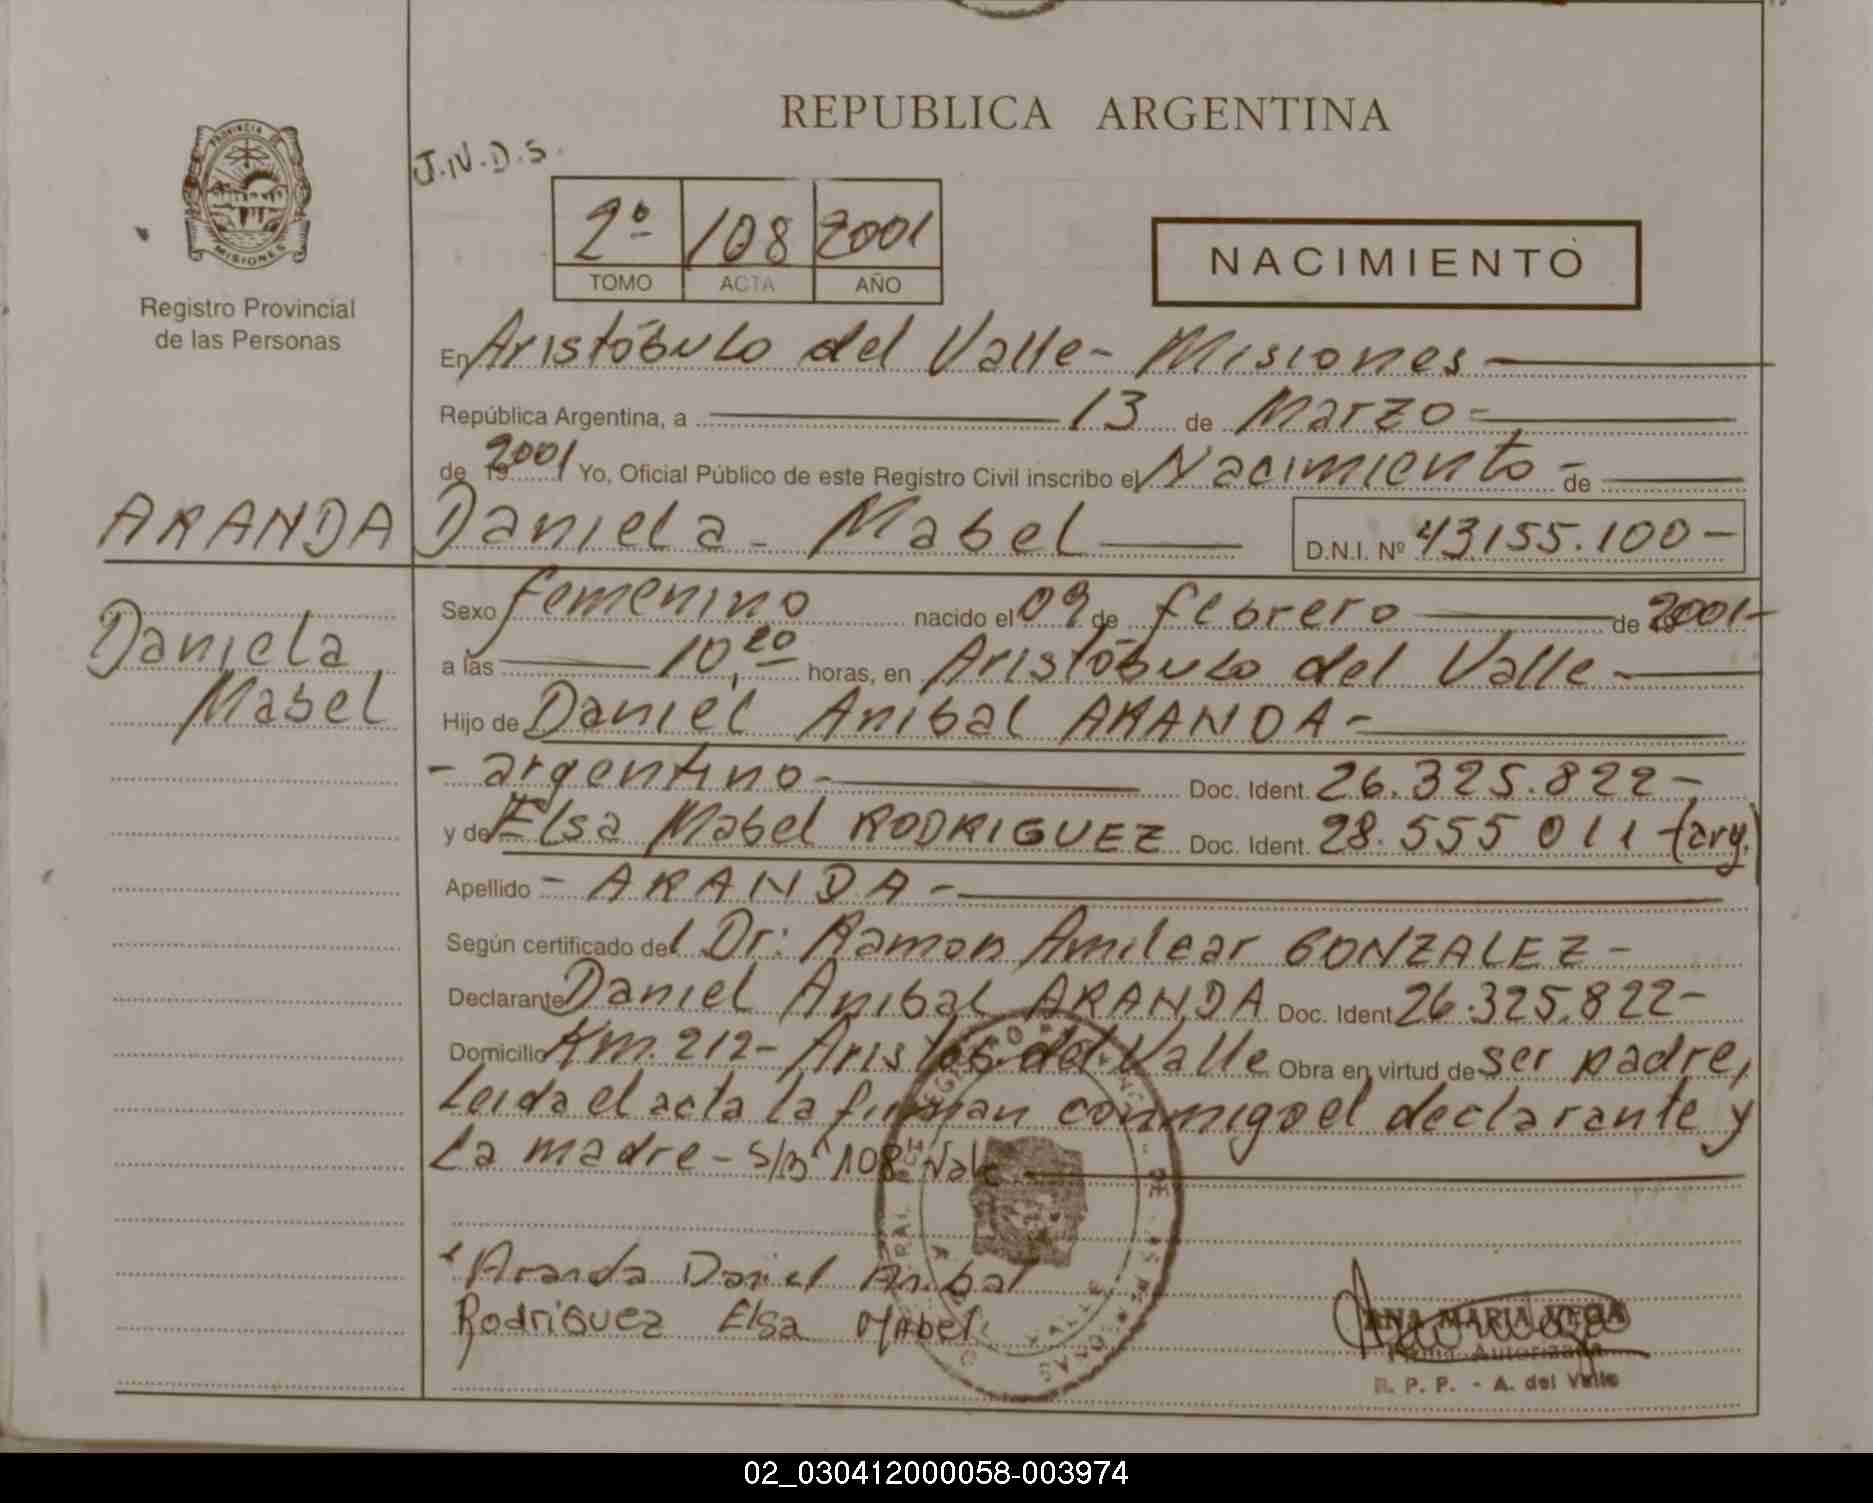 REPUBLICA ARGENTINA
PROVINCIA
MISIONES
Registro Provincial
de las Personas
J.N.D.S.
2º 108 2001
TOMO ACTA AÑO
NACIMIENTO
En Aristóbulo del Valle - Misiones
República Argentina, a 13 de Marzo -
de 19 2001 Yo, Oficial Público de este Registro Civil inscribo el Nacimiento - de
ARANDA Daniela - Mabel D.N.I. Nº 43.155.100 -
Daniela
Mabel
Sexo femenino nacido el 09 de febrero de 2001 -
a las 10,20 horas, en Aristóbulo del Valle -
Hijo de Daniel Anibal ARANDA -
- argentino - Doc. Ident. 26.325.822 -
y de Elsa Mabel RODRIGUEZ Doc. Ident. 28.555 011 - (arg.)
Apellido - ARANDA -
Según certificado del Dr: Ramon Amilcar GONZALEZ -
Declarante Daniel Anibal ARANDA Doc. Ident 26.325.822 -
Domicilio Km. 212 - Aristób. del Valle Obra en virtud de ser padre,
Leida el acta la firman conmigo el declarante y
La madre - S/B 108 Vale
Aranda Daniel Anibal
Rodriguez Elsa Mabel
ANA MARIA VEGA
Firma Autorizada
R. P. P. - A. del Valle
02_030412000058-003974